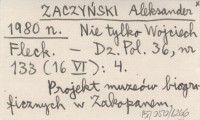 ZACZYŃSKI Aleksander x
1980 r. Nie tylko Wojciech
Fleck. - Dz. Pol. 36, nr
133 (16 VI): 4.
Projekt muzeów biogra-
ficznych w Zakopanem.